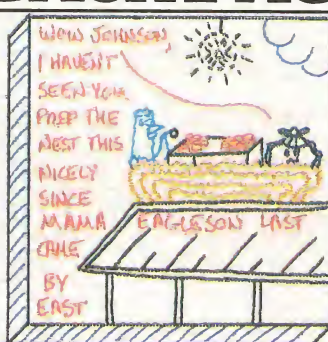 WOW JOHNSON,
I HAVEN'T
SEEN YOU
PREP THE
NEST THIS
NICELY
SINCE
MAMA EAGLESON LAST
CAME
BY
EAST